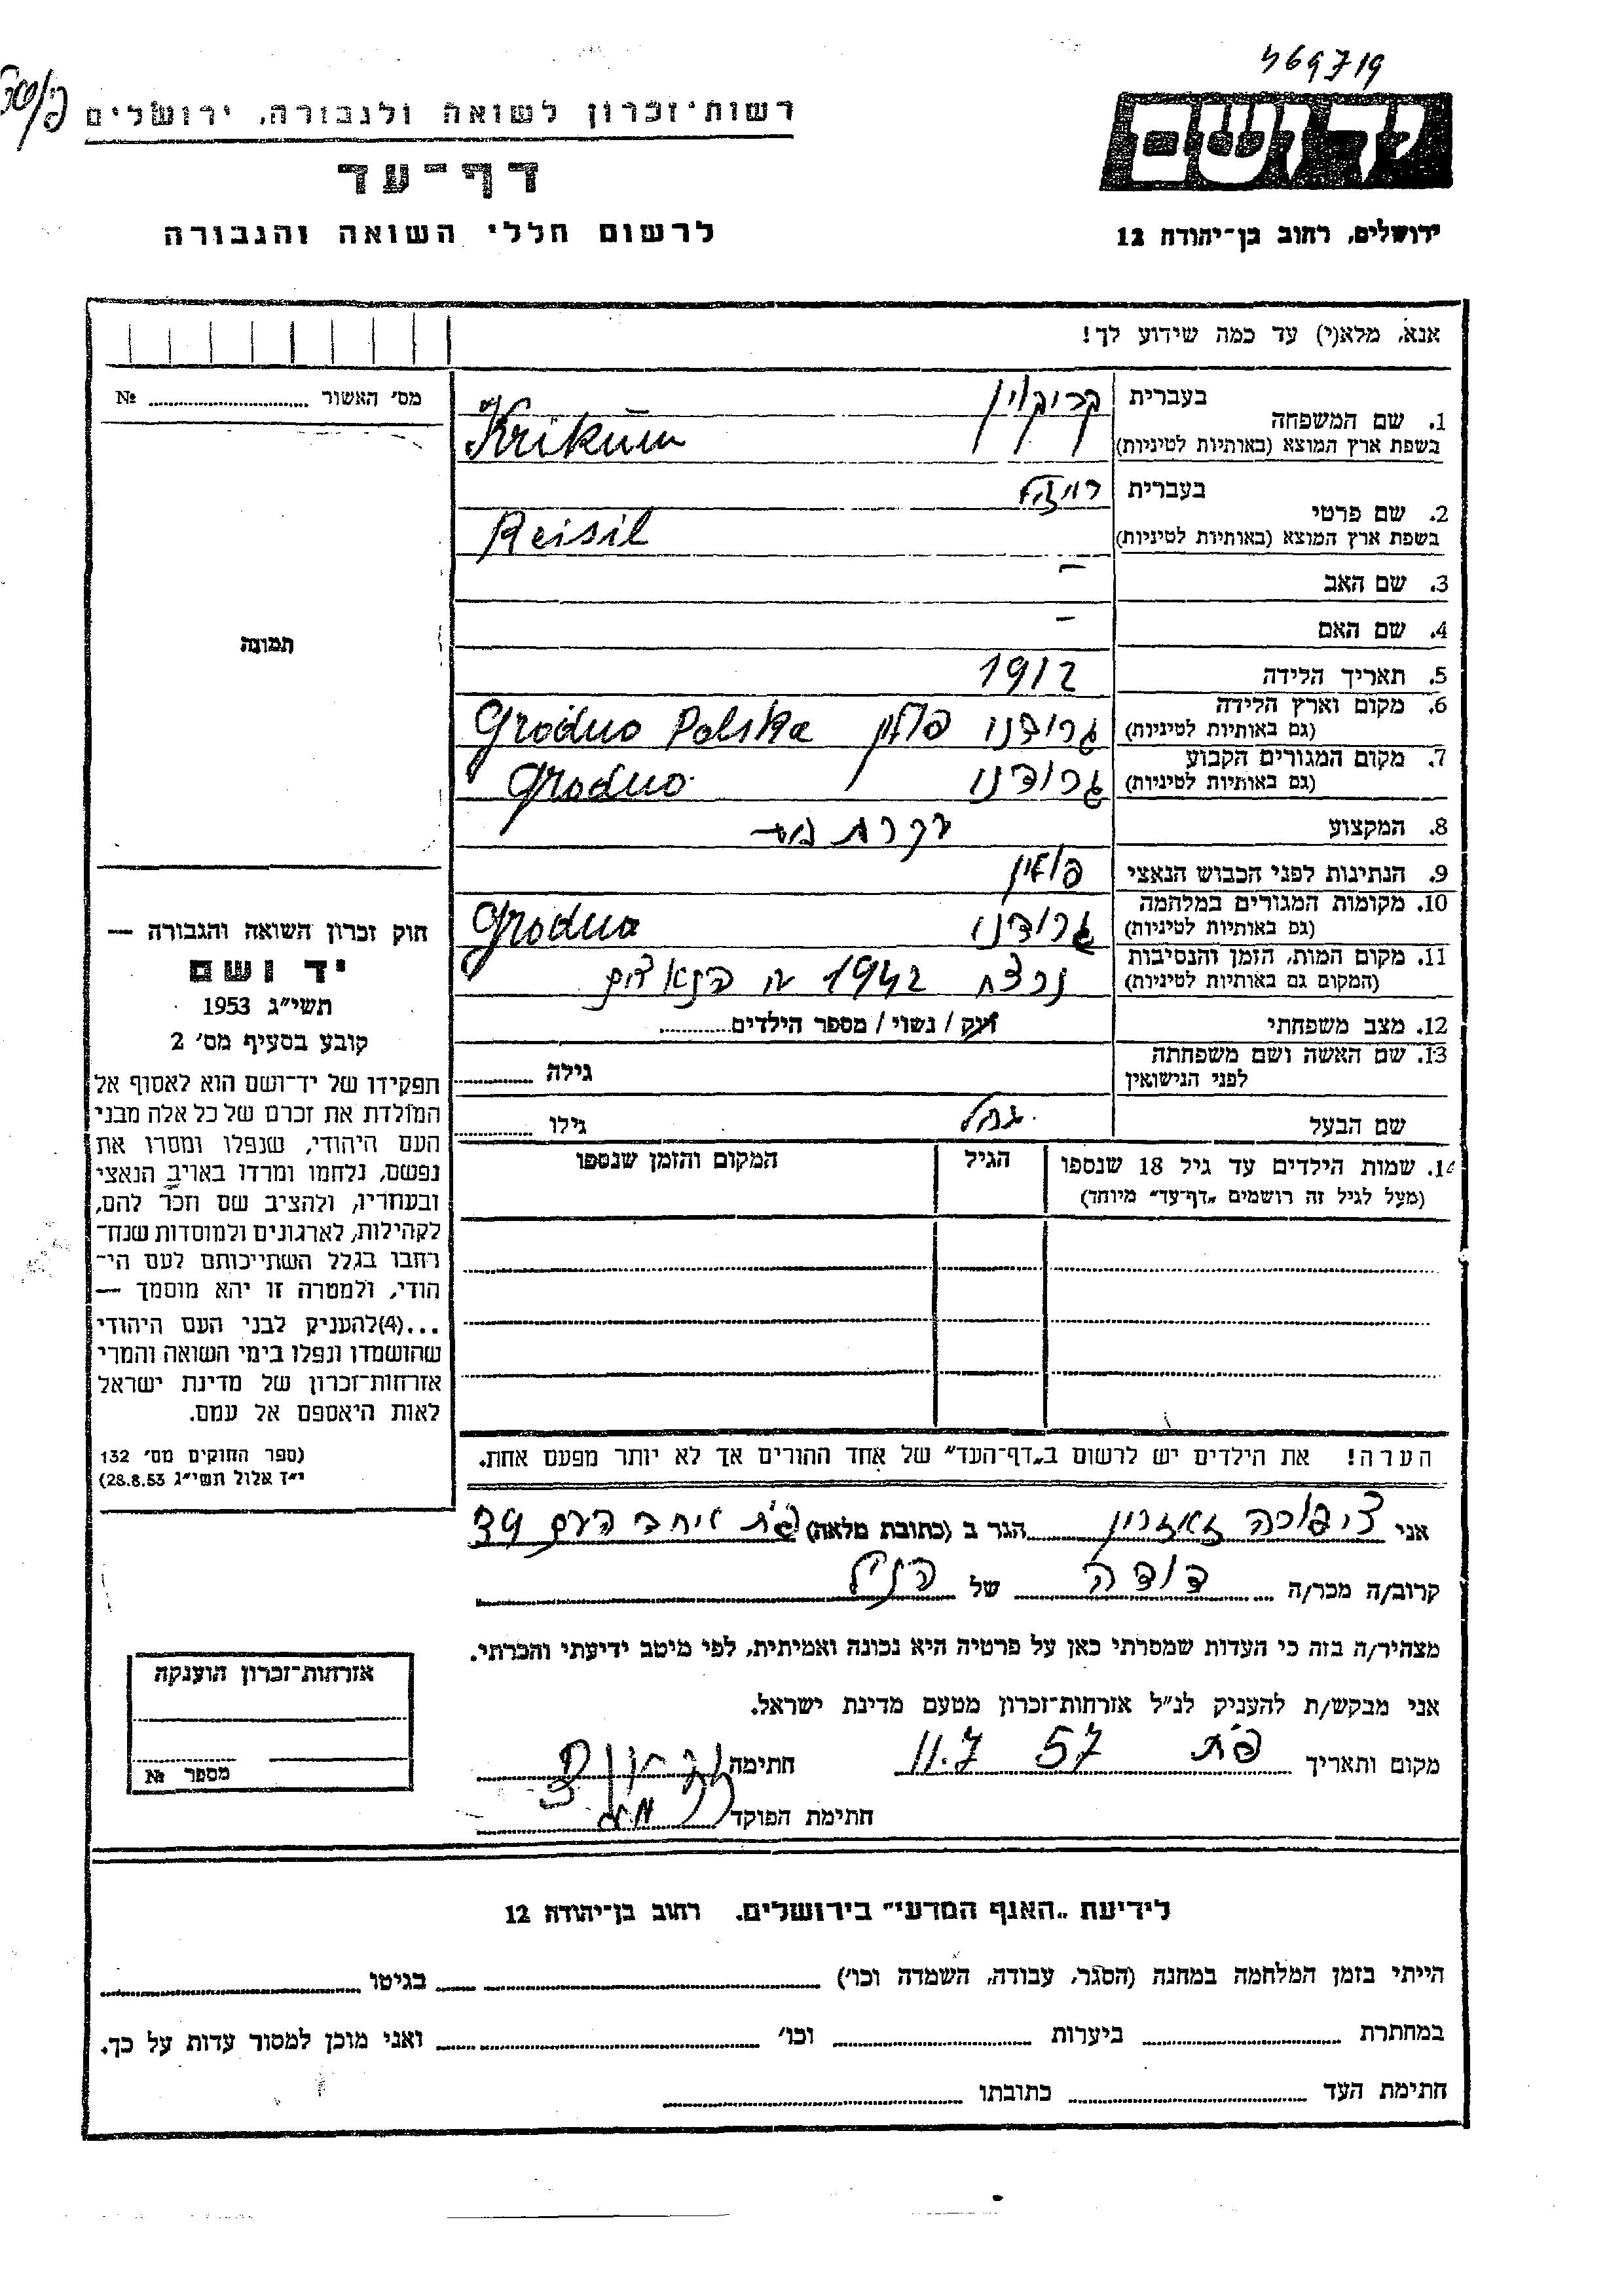 469719
רשות־זכרון לשואה ולגבורה, ירושלים
יד ושם
דף־עד
לרשום חללי השואה והגבורה
ירושלים, רחוב בן־יהודה 12
אנא, מלא(י) עד כמה שידוע לך!
מס׳ האשור № 
תמונה
1. שם המשפחה
בעברית
בשפת ארץ המוצא (באותיות לטיניות) Krikun
2. שם פרטי
בעברית רייזל
בשפת ארץ המוצא (באותיות לטיניות) Reisil
3. שם האב –
4. שם האם –
5. תאריך הלידה 1912
6. מקום וארץ הלידה
(גם באותיות לטיניות) גרודנו פולין Grodno Polska
7. מקום המגורים הקבוע
(גם באותיות לטיניות) גרודנו Grodno
8. המקצוע עקרת בית
9. הנתינות לפני הכבוש הנאצי פולין
10. מקומות המגורים במלחמה
(גם באותיות לטיניות) גרודנו Grodno
11. מקום המות, הזמן והנסיבות
(המקום גם באותיות לטיניות) 1942
12. מצב משפחתי רוק / נשוי / מספר הילדים
13. שם האשה ושם משפחתה
לפני הנישואין
גילה
שם הבעל
גילו
14. שמות הילדים עד גיל 18 שנספו
(מעל לגיל זה רושמים „דף־עד״ מיוחד)
הגיל
המקום והזמן שנספו
הערה! את הילדים יש לרשום ב„דף־העד״ של אחד ההורים אך לא יותר מפעם אחת.
חוק זכרון השואה והגבורה —
יד ושם
תשי״ג 1953
קובע בסעיף מס׳ 2
תפקידו של יד־ושם הוא לאסוף אל
המולדת את זכרם של כל אלה מבני
העם היהודי, שנפלו ומסרו את
נפשם, נלחמו ומרדו באויב הנאצי
ובעוזריו, ולהציב שם וזכר להם,
לקהילות, לארגונים ולמוסדות שנח־
רחבו בגלל השתייכותם לעם הי־
הודי, ולמטרה זו יהא מוסמך —
...(4)להעניק לבני העם היהודי
שהושמדו ונפלו בימי השואה והמרי
אזרחות־זכרון של מדינת ישראל
לאות היאספם אל עמם.
(ספר החוקים מס׳ 132
י״ד אלול תשי״ג 28.8.53)
אני ציפורה הגר ב (כתובת מלאה) פ״ת אחד העם 39
קרוב/ה מכר/ה דודה של הנ״ל
מצהיר/ה בזה כי העדות שמסרתי כאן על פרטיה היא נכונה ואמיתית, לפי מיטב ידיעתי והכרתי.
אני מבקש/ת להעניק לנ״ל אזרחות־זכרון מטעם מדינת ישראל.
מקום ותאריך פ״ת 11.7 57 חתימה
חתימת הפוקד
אזרחות־זכרון הוענקה
מספר №
לידיעת „האגף המדעי״ בירושלים. רחוב בן־יהודה 12
הייתי בזמן המלחמה במחנה (הסגר, עבודה, השמדה וכו׳) בגיטו
במחתרת ביערות וכו׳ ואני מוכן למסור עדות על כך.
חתימת העד כתובתו